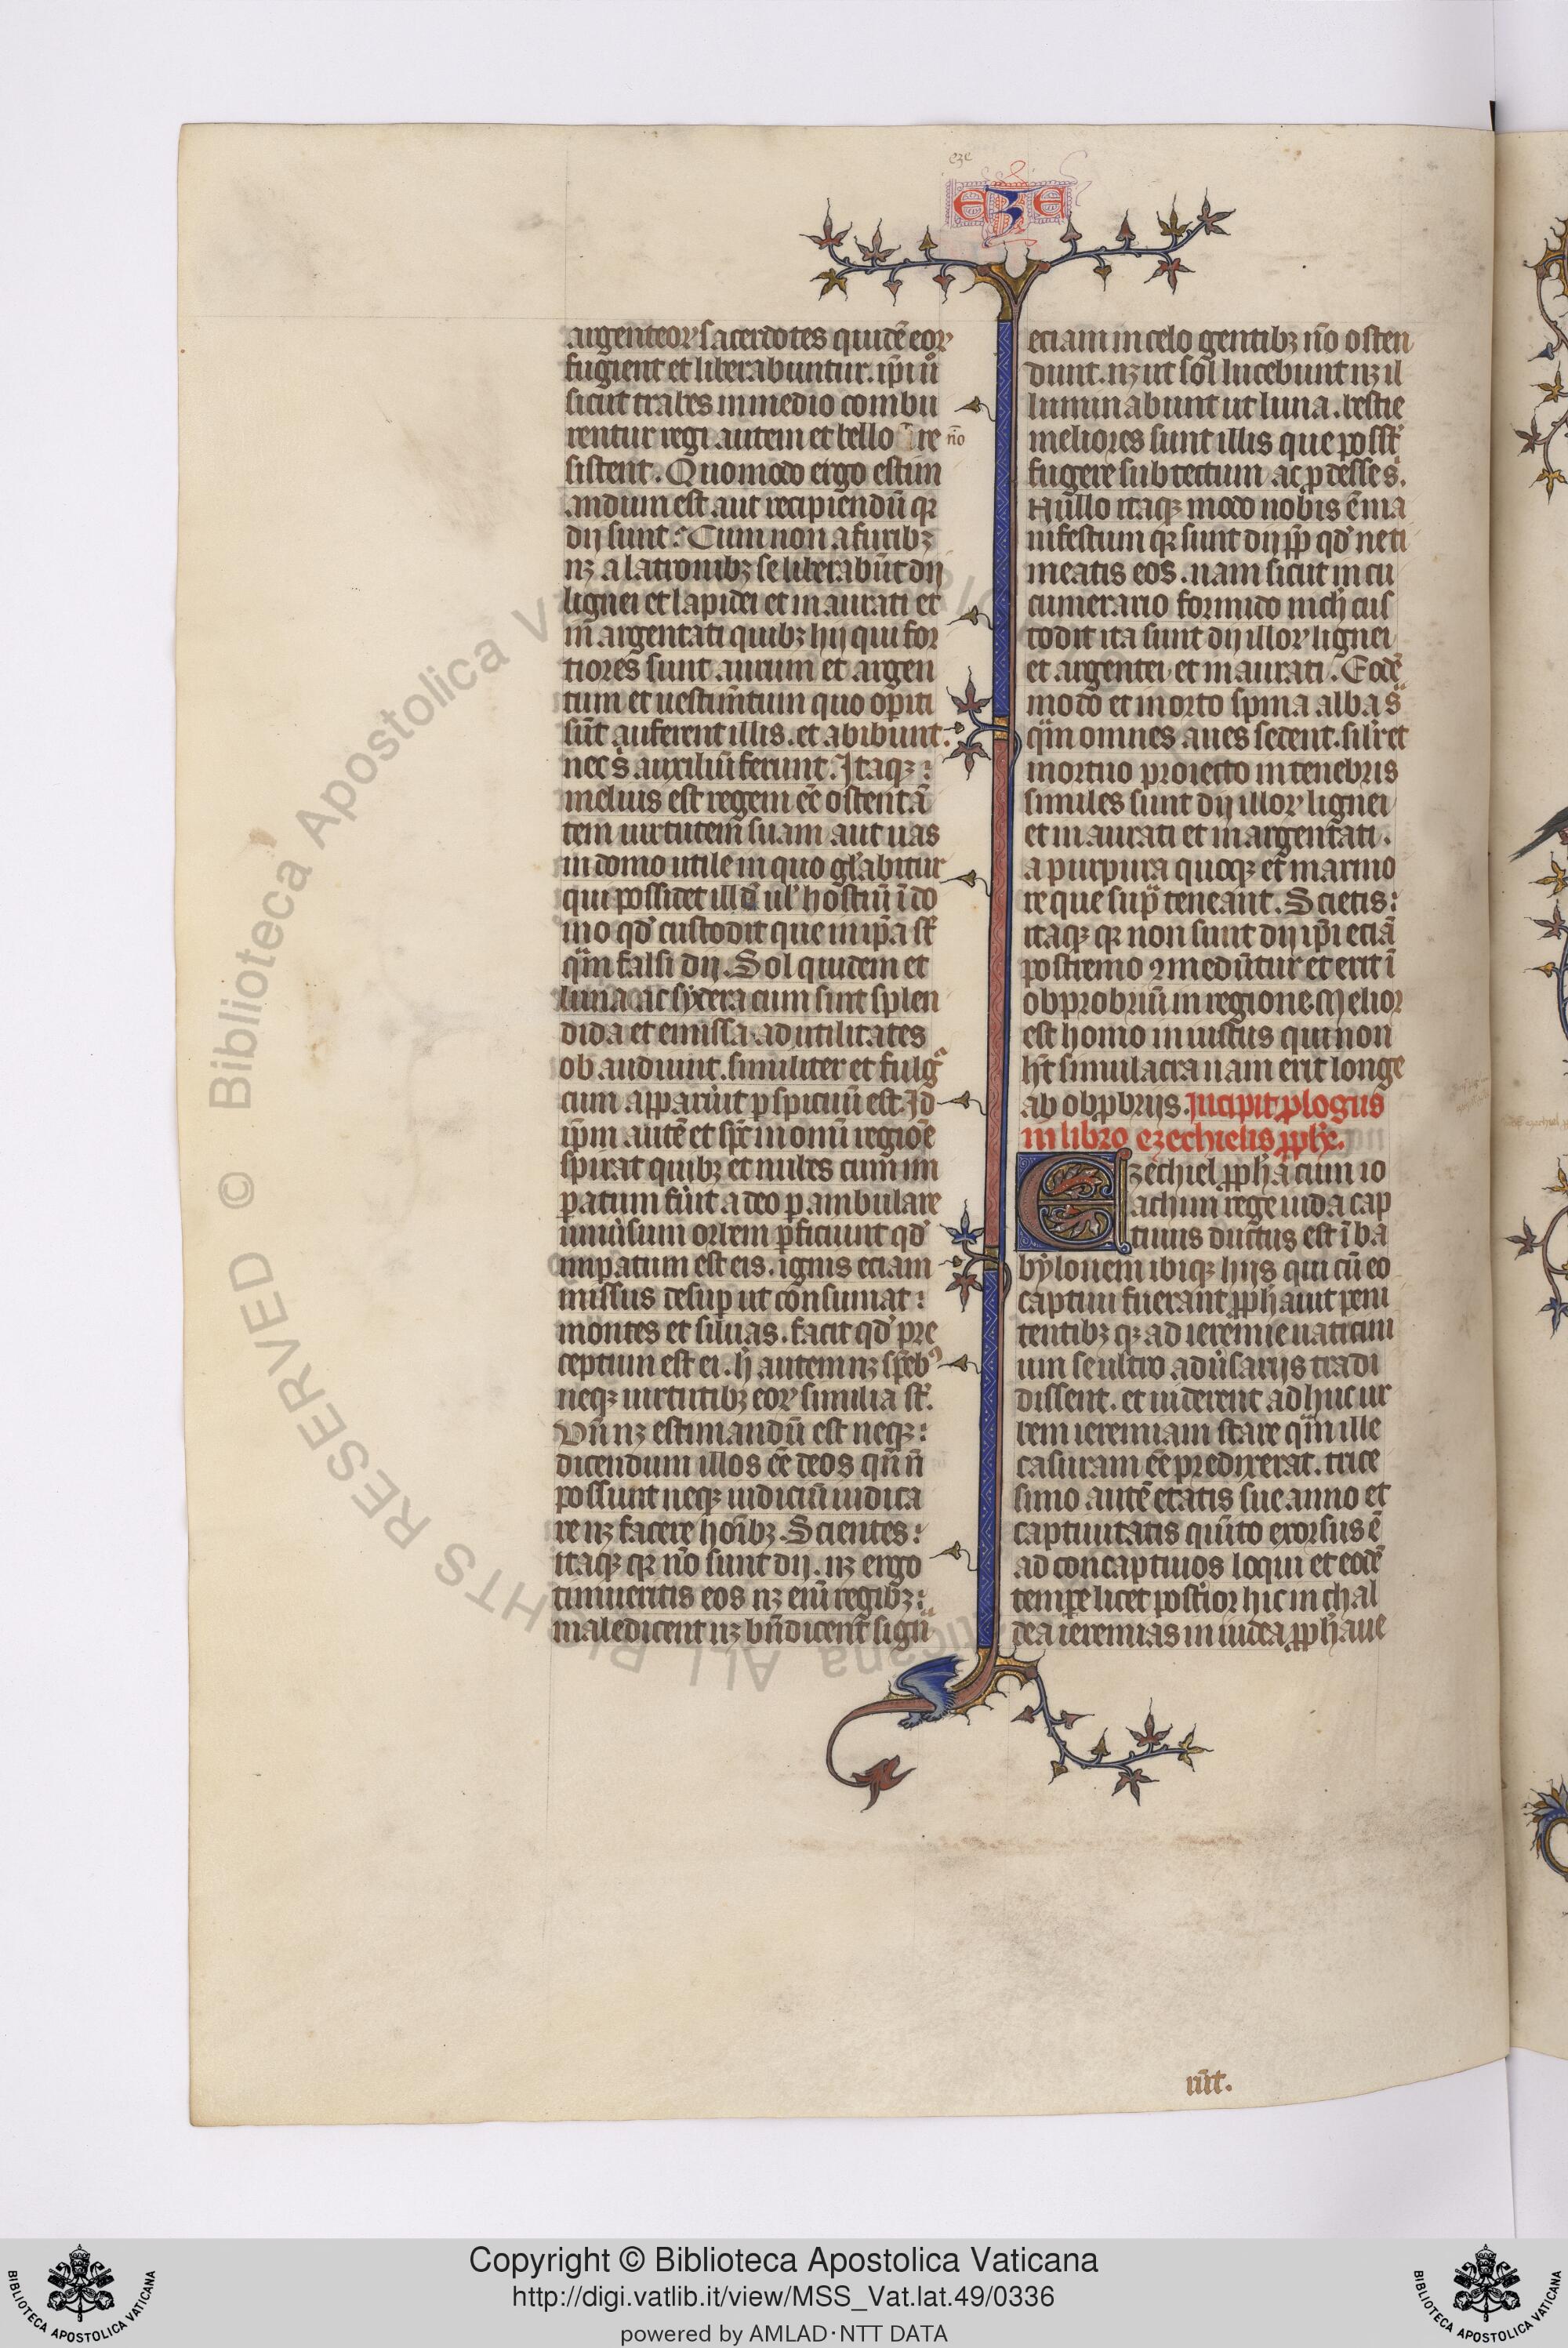 eze
EZE
argenteoꝝ sacerdotes quidē eoꝝ
fugient et liberabuntur. ip̄i u̾o
sicut trabes in medio combu
rentur regi autem et bello re
n̄o
sistent. Quomodo ergo estim
andum est aut recipiendū qꝛ
dij sunt: Cum non a furibꝫ
nꝫ a latronibꝫ se liberabūt dij
lignei et lapidei et in aurati et
in̄ argentati quibꝫ hij qui for
tiores sunt aurum et argen
tum et uestim̄tum quo op̄iti
sūt auferent illis. et abibunt.
nec s̕ auxiliū ferunt. Itaqꝫ:
melius est regem ēē ostentā
tem uirtutem suam aut uas
in domo utile in quo gl̕abitur
qui possidet illd̕ ul̕ hostiū ī do
mo qd̕ custodit que in ip̄a st̕
qͣm falsi dij. Sol quidem et
luna ac sydera cum sint splen
dida et emissa ad utilitates
ob audiunt. similiter et fulgͣ
cum apparu̾it ꝑspicuū est. Id
ip̄m autē et sp̄c in om̄i regiōe
spirat quibꝫ et nubes cum im
ꝑatum fu̾it a deo ꝑambulare
uniu̾sum orbem ꝑficiunt qd̕
imꝑatum est eis. ignis eciam
missus desuꝑ ut consumat:
montes et siluas. facit qd̕ pre
ceptum est ei. h̕ autem nꝫ sp̄ebꝰ
neqꝫ uirtutibꝫ eoꝝ similia st̕.
Vn̄ nꝫ estimandū est neqꝫ:
dicendum illos ēē deos qn̄ n̄
possunt neqꝫ iudiciū iudica
re nꝫ facere ho͞ibꝫ. Scientes:
itaqꝫ qꝛ n̄o sunt dij. nꝫ ergo
timueritis eos nꝫ eni͞ regibꝫ:
maledicent nꝫ bn̄dicent signͣ
eciam in celo gentibꝫ n̄o osten
dunt. nꝫ ut sol lucebunt nꝫ il
luminabunt ut luna. bestie
meliores sunt illis que posst̕
fugere sub tectum ac ꝓdesse s̕.
Nullo itaqꝫ modo nobis ē ma
nifestum qꝛ sunt dij ꝓp̄ qd̕ ne ti
meatis eos. nam sicut in cu
cumerario formido nich̕ cus
todit ita sunt dij illoꝝ lignei
et argentei et in aurati. Eodē
modo et in orto spina alba sͣ
qͣm omnes aues sedent. sil̕r et
mortuo proiecto in tenebris
similes sunt dij illoꝝ lignei
et in aurati et in argentati.
a purpura quoqꝫ et marmo
re que supͣ teneant. Scietis:
itaqꝫ qꝛ non sunt dij ip̄i eciā
postremo ꝯmedūtur et erit ī
obprobriū in regione. Melior
est homo iniustus qui non
h̄t simulacra nam erit longe
ab obꝓbrijs. Incipit ꝓlogus
in libro ezechielis ꝓph̕e.
Ezechiel ꝓph̕a cum io
achim rege iuda cap
tiuus ductus est ī ba
bylonem ibiqꝫ hijs qui cū eo
captiui fuerant ꝓph̕auit peni
tentibꝫ qꝫ ad ieremie uaticini
um se ultro adu̾sarijs tradi
dissent. et uiderent adhuc ur
bem ieremiam stare qͣm ille
casuram ēē predixerat. trice
simo autē etatis sue anno et
captiuitatis quīto exorsus ē
ad concaptiuos loqui et eodē
temꝑe licet posti̾or hic in chal
dea ieremias in iudea ꝓph̕aue
rūt.
© Biblioteca Apostolica Vaticana ALL RIGHTS RESERVED
Copyright © Biblioteca Apostolica Vaticana
http://digi.vatlib.it/view/MSS_Vat.lat.49/0336
powered by AMLAD·NTT DATA
BIBLIOTECA APOSTOLICA VATICANA
BIBLIOTECA APOSTOLICA VATICANA